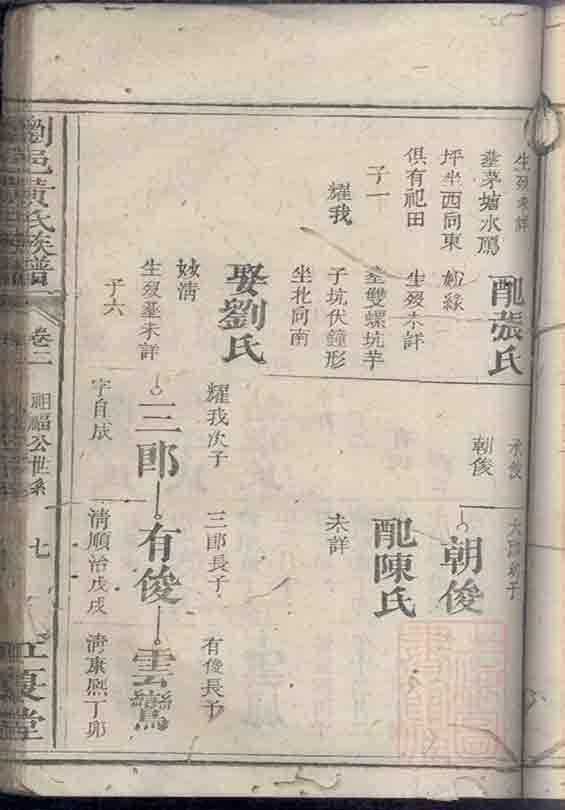 生歿未詳
塟茅塘水鴈
坪坐西向東
俱有祀田
子一
耀我
配張氏
妣緣
生歿未詳
塟雙螺坑芋
子坑伏鐘形
坐北向南
娶劉氏
妙清
生歿塟未詳
子六
朝俊
朝俊
配陳氏
未詳
耀我次子
三郎
字自成
三郎長子
有俊
清順治戊戌
有俊長子
雲鸞
清康熙丁卯
劉邑黃氏族譜
卷二
祖福公世系
七
江夏堂